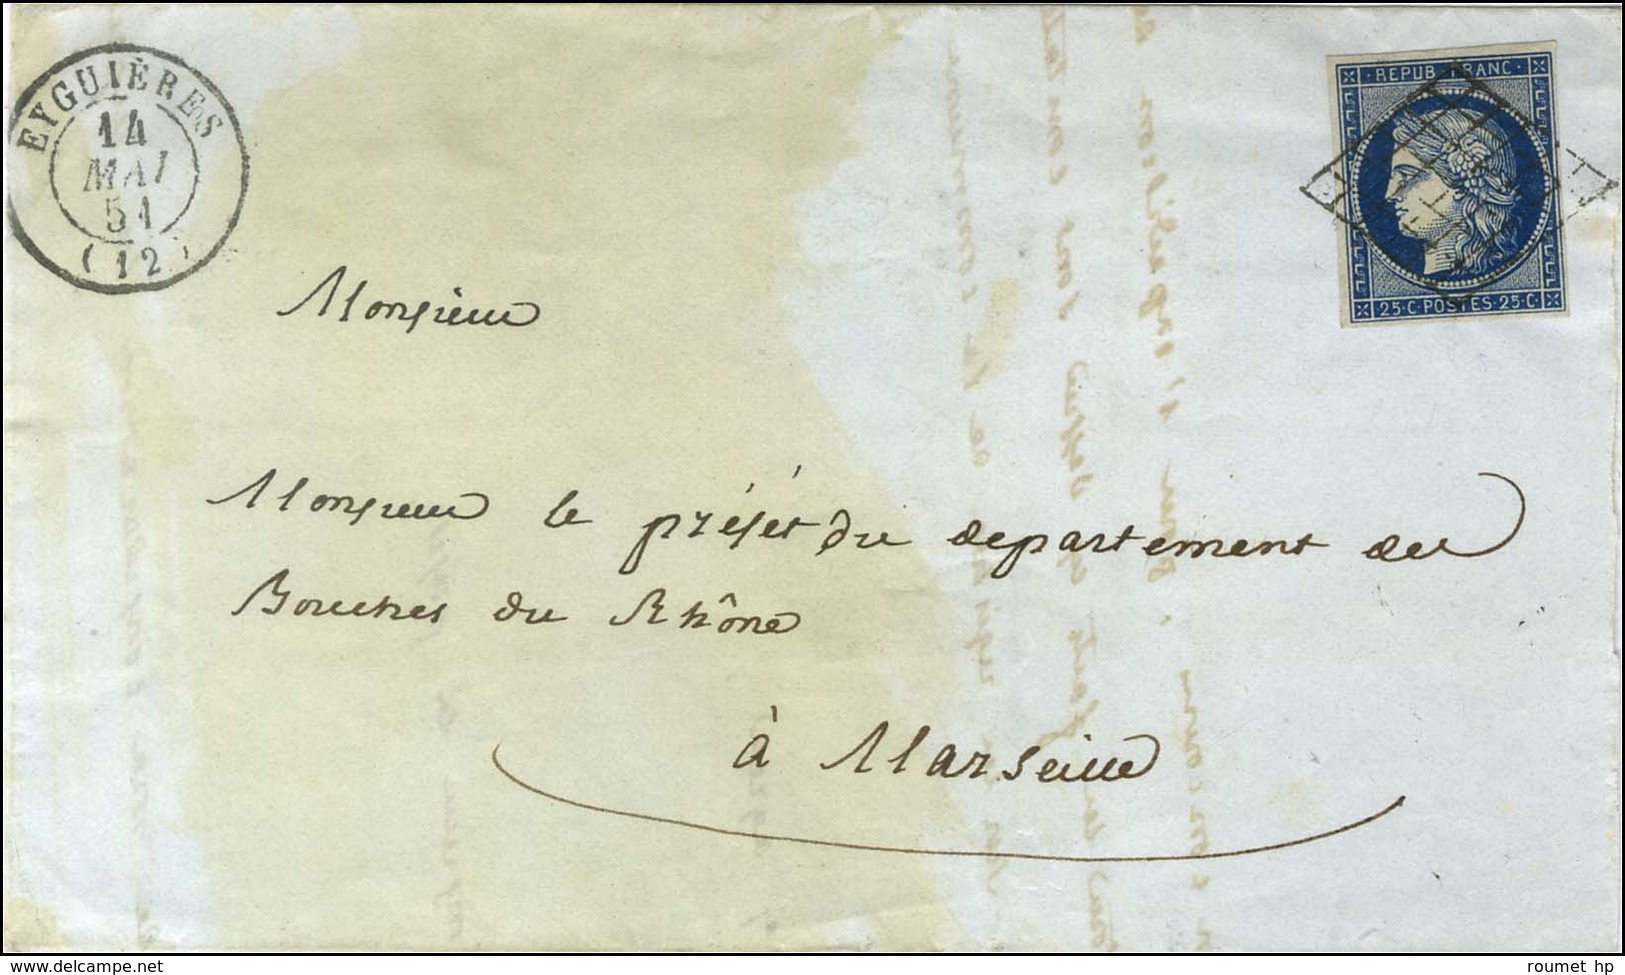 EYGUIÈRES
14
MAI
51
(12)
REPUB FRANC
25 C POSTES 25 C
Monsieur
Monsieur le préfet du departement des
Bouches du Rhône
à Marseille
www.delcampe.net
roumet hp